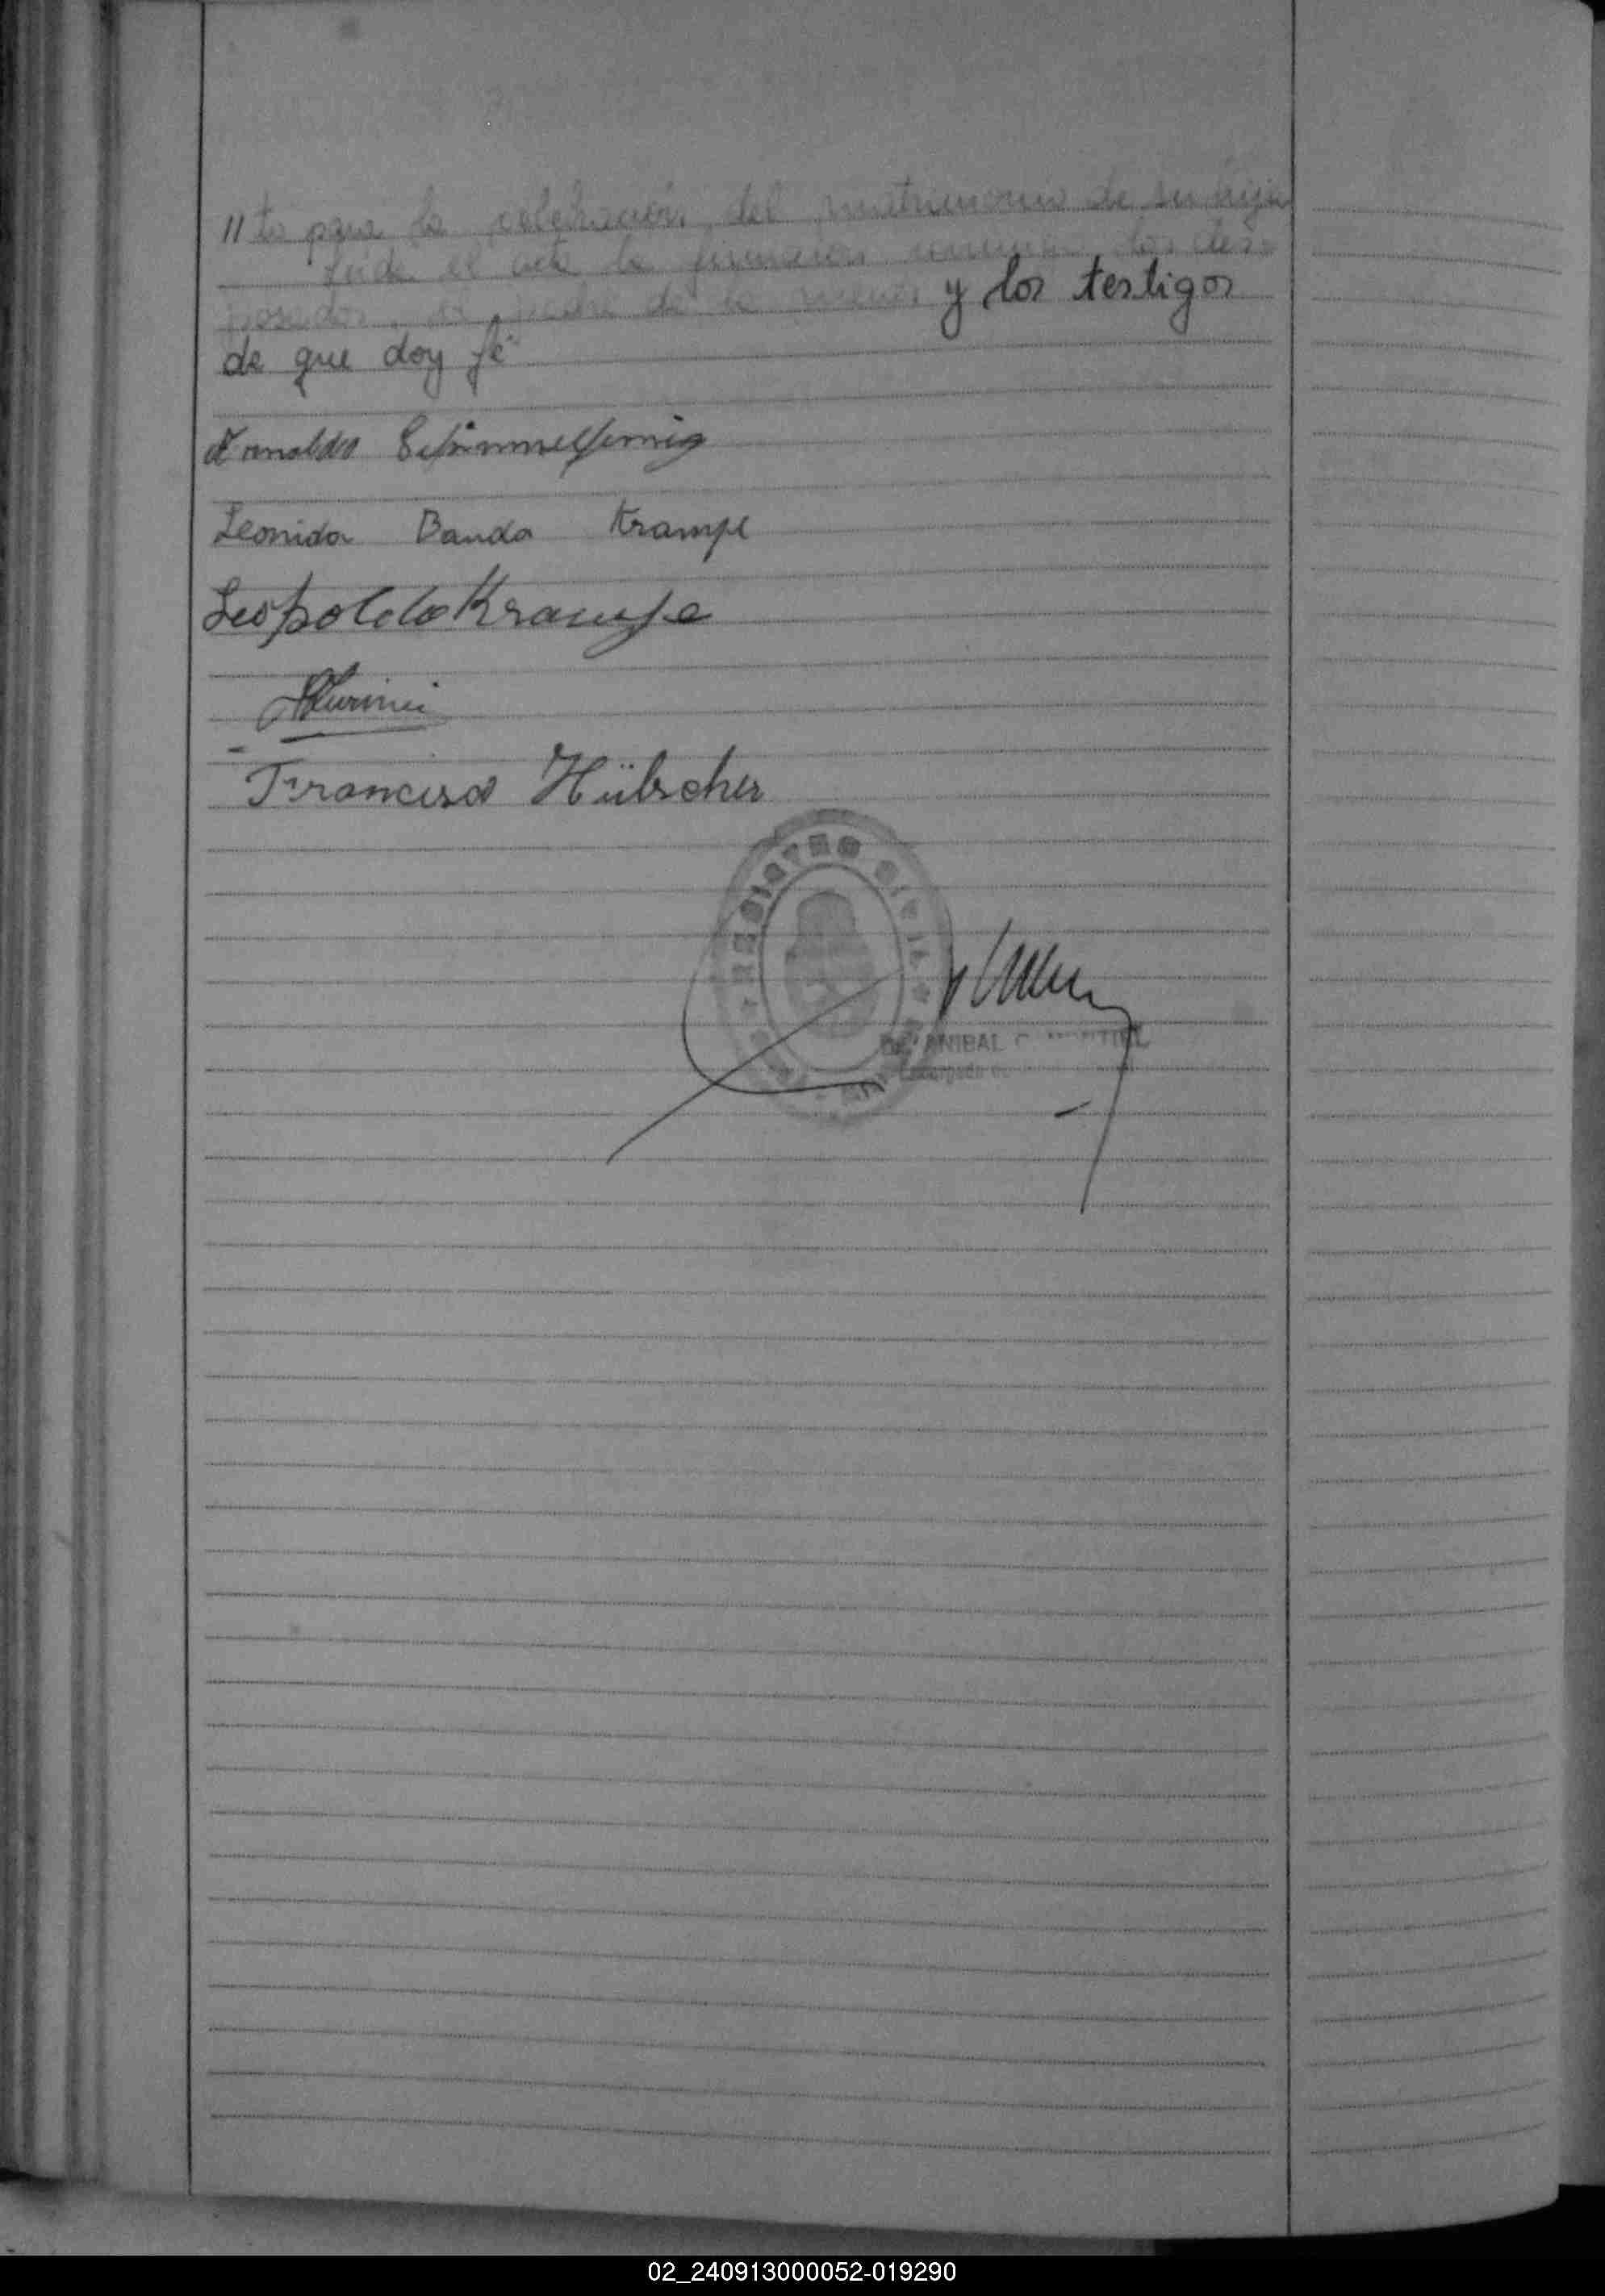 "to para la celebración del matrimonio de su hija
Leída el acta la firmaron conmigo los des-
posados, el padre de la menor y los testigos
de que doy fé
Arnoldo Schimmelfennig
Leonida Banda Krampe
Leopoldo Krampe
Francisco Hübscher
REGISTRO CIVIL
ANIBAL
02_240913000052-019290